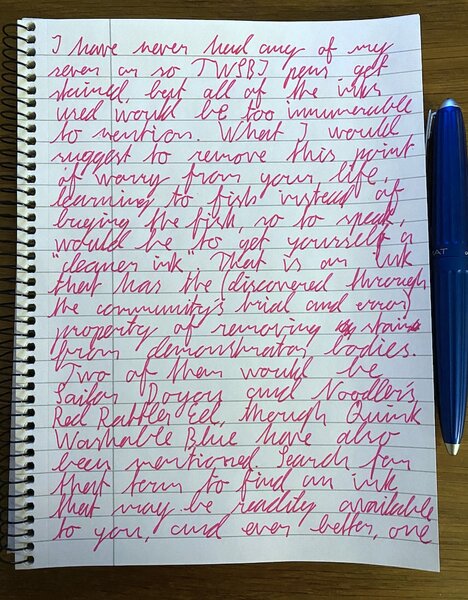 I have never had any of my
seven or so TWSBI pens get
stained, but all of the inks
used would be too innumerable
to mention. What I would
suggest to remove this point
of worry from your life,
learning to fish instead of
buying the fish, so to speak,
would be to get yourself a
"cleaner ink". That is an ink
that has the (discovered through
the community's trial and error)
property of removing stains
from demonstrator bodies.
Two of them would be
Sailor Doyou and Noodler's
Red Rattler Eel, though Quink
Washable Blue have also
been mentioned. Search for
that term to find an ink
that may be readily available
to you, and even better, one